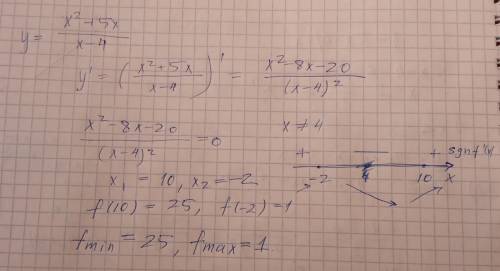 y = (x²+5x)/(x-4)
y' = ((x²+5x)/(x-4))' = (x²-8x-20)/(x-4)²
(x²-8x-20)/(x-4)² = 0 x ≠ 4
+ — + sgn f'(x)
-2 4 10 x
x₁ = 10, x₂ = -2
f(10) = 25, f(-2) = 1
fmin = 25, fmax = 1